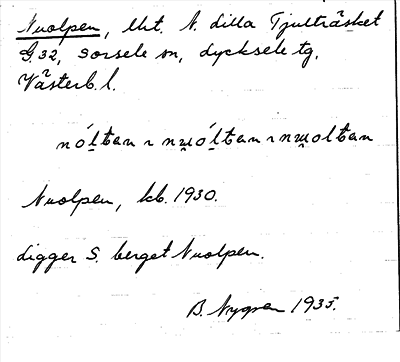 Nuolpen, lht. N. Lilla Tjulträsket
G.32, Sorsele sn, Lycksele tg,
Västerb. l.
nól̲tan ~ nwól̲tan ~ nwoltan
Nuolpen, kb. 1930.
Ligger S. berget Nuolpen.
B. Nygren 1935.